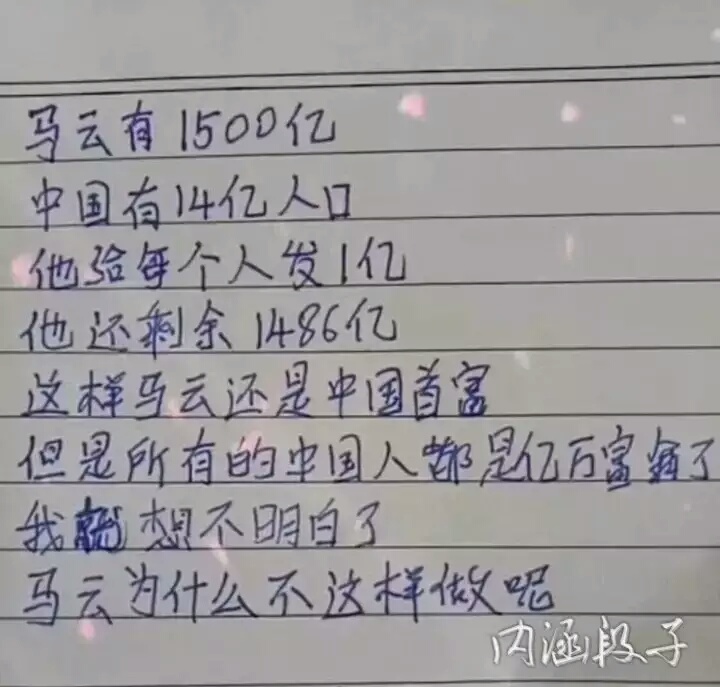 马云有1500亿
中国有14亿人口
他给每个人发1亿
他还剩余1486亿
这样马云还是中国首富
但是所有的中国人都是亿万富翁了
我就想不明白了
马云为什么不这样做呢
内涵段子